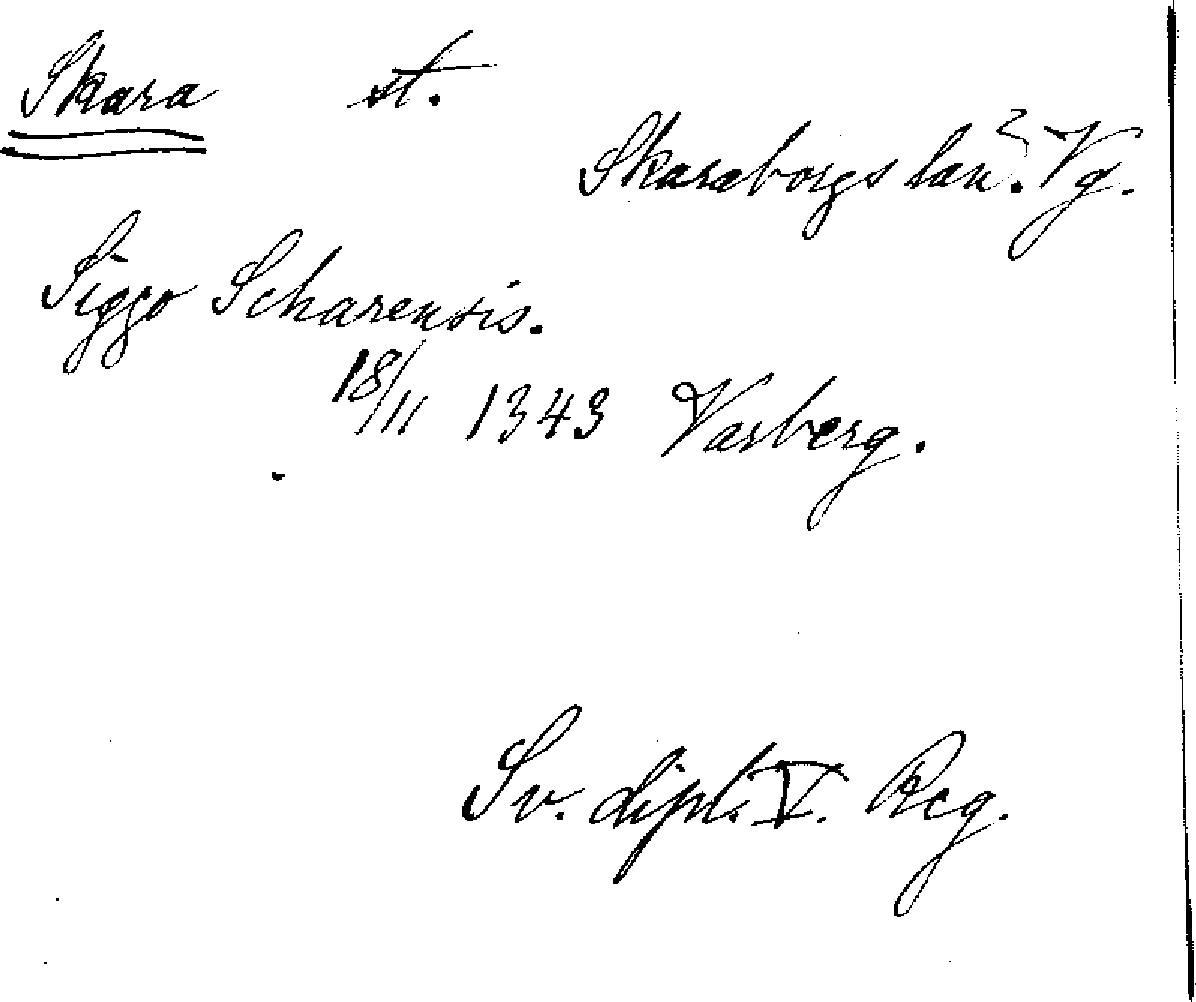 Skara st.
Skaraborgs län. Vg.
Siggo Scharensis.
18/11 1343 Varberg.
Sv. dipl. V. Reg.